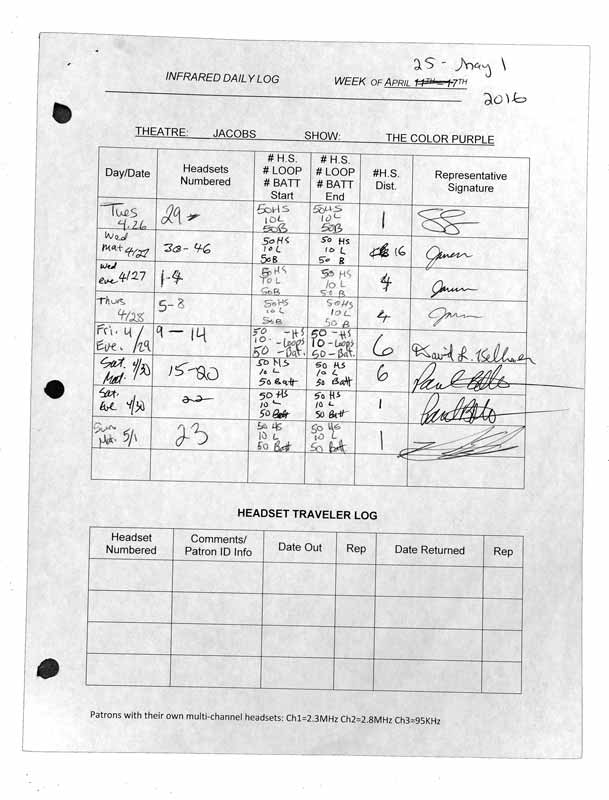 25 - May 1
INFRARED DAILY LOG WEEK OF APRIL 11TH – 17TH
2016
THEATRE: JACOBS SHOW: THE COLOR PURPLE
Day/Date Headsets Numbered # H.S. # LOOP # BATT Start # H.S. # LOOP # BATT End #H.S. Dist. Representative Signature
Tues 4.26 29 50HS 10L 50B 50HS 10L 50B 1
Wed Mat 4/27 30-46 50 HS 10 L 50B 50 HS 10 L 50 B 16
Wed eve 4/27 1-4 50HS 10L 50B 50 HS 10 L 50 B 4
Thurs 4/28 5-8 50HS 10L 50B 50HS 10L 50 B 4
Fri. 4/29 Eve. 9 – 14 50 -HS 10 -Loops 50 -Bat. 50 -HS 10-Loops 50-Bat. 6 David L.
Sat. 4/30 Mat. 15-20 50 HS 10 L 50 Batt 50 HS 10 L 50 Batt 6 Paul
Sat. Eve 4/30 22 50 HS 10 L 50 Batt 50 HS 10 L 50 Batt 1 Paul
Sun Mat. 5/1 23 50 HS 10 L 50 Batt 50 HS 10 L 50 Batt 1
HEADSET TRAVELER LOG
Headset Numbered Comments/ Patron ID Info Date Out Rep Date Returned Rep
Patrons with their own multi-channel headsets: Ch1=2.3MHz Ch2=2.8MHz Ch3=95KHz